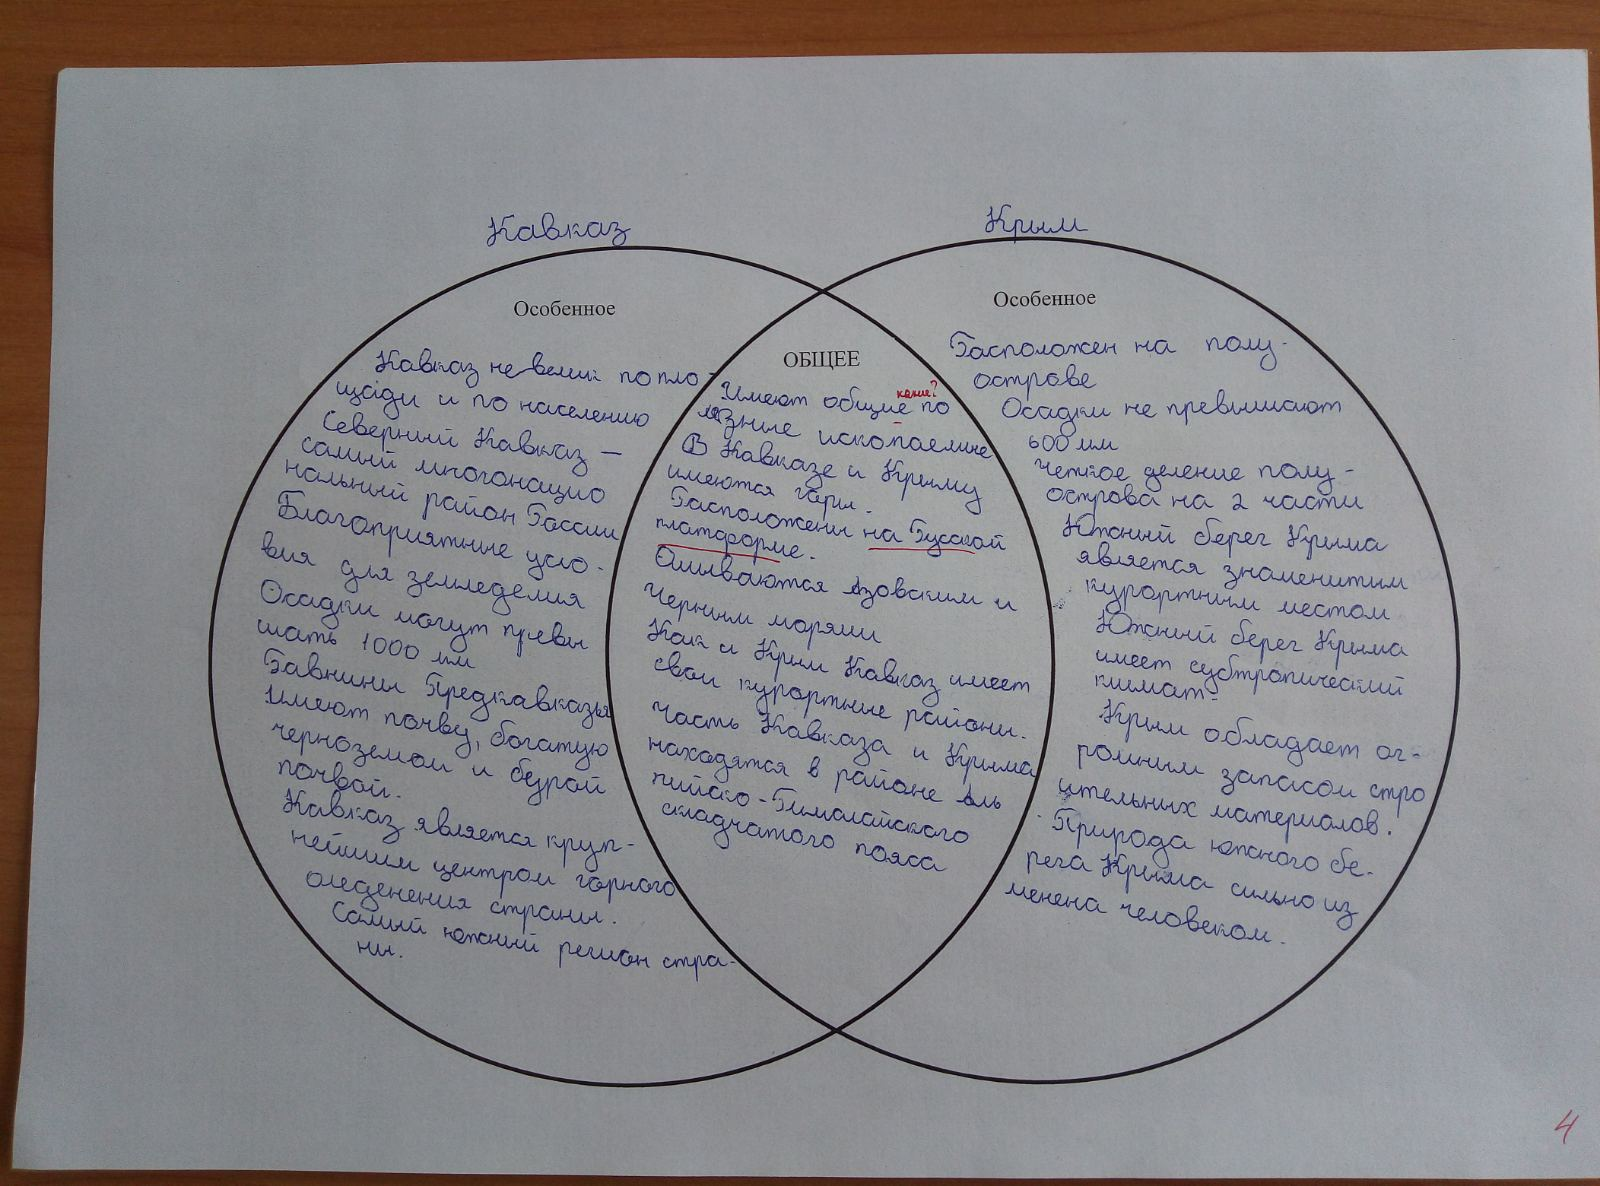 Кавказ
Особенное
Кавказ не велик по пло-
щади и по населению
Северный Кавказ —
самый многонацио
нальный район России
Благоприятные усло-
вия для земледелия
Осадки могут превы
шать 1000 мм
Равнины Предкавказья
имеют почву, богатую
черноземом и бурой
почвой.
Кавказ является круп-
нейшим центром горного
оледенения страны.
Самый южный регион стра-
ны.
ОБЩЕЕ
какие?
Имеют общие по
лезные ископаемые
В Кавказе и Крыму
имеются горы.
Расположены на Русской
платформе.
Омываются Азовским и
Черным морями
Как и Крым Кавказ имеет
свои курортные районы.
Часть Кавказа и Крыма
находятся в районе Аль
пийско-Гималайского
складчатого пояса
Крым
Особенное
Расположен на полу-
острове
Осадки не превышают
600 мм
Четкое деление полу-
острова на 2 части
Южный берег Крыма
является знаменитым
курортным местом
Южный берег Крыма
имеет субтропический
климат
Крым обладает ог-
ромным запасом стро
ительных материалов.
Природа южного бе-
рега Крыма сильно из
менена человеком.
4